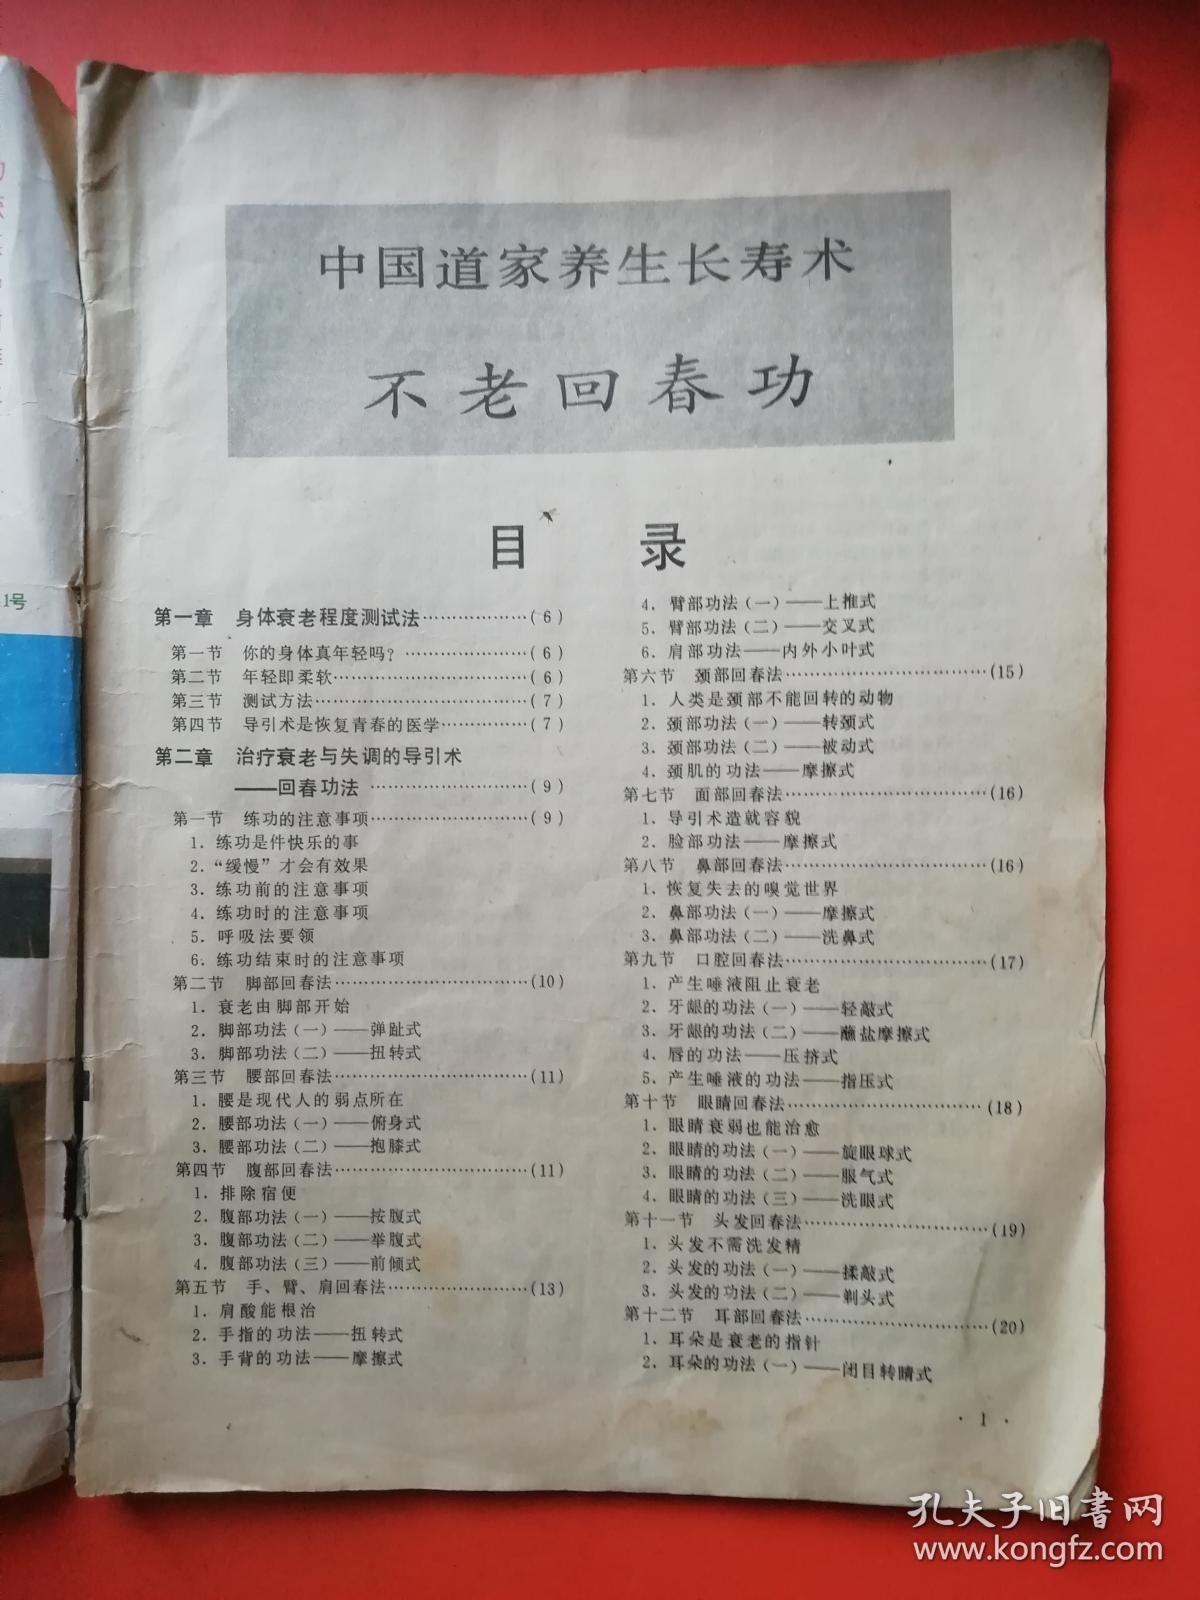 中国道家养生长寿术
不老回春功
目 录
第一章 身体衰老程度测试法………………(6)
第一节 你的身体真年轻吗？…………………(6)
第二节 年轻即柔软……………………………(6)
第三节 测试方法………………………………(7)
第四节 导引术是恢复青春的医学……………(7)
第二章 治疗衰老与失调的导引术
——回春功法……………………(9)
第一节 练功的注意事项………………………(9)
1．练功是件快乐的事
2．“缓慢”才会有效果
3．练功前的注意事项
4．练功时的注意事项
5．呼吸法要领
6．练功结束时的注意事项
第二节 脚部回春法……………………………(10)
1．衰老由脚部开始
2．脚部功法(一)——弹趾式
3．脚部功法(二)——扭转式
第三节 腰部回春法……………………………(11)
1．腰是现代人的弱点所在
2．腰部功法(一)——俯身式
3．腰部功法(二)——抱膝式
第四节 腹部回春法……………………………(11)
1．排除宿便
2．腹部功法(一)——按腹式
3．腹部功法(二)——举腹式
4．腹部功法(三)——前倾式
第五节 手、臂、肩回春法……………………(13)
1．肩酸能根治
2．手指的功法——扭转式
3．手背的功法——摩擦式
4．臂部功法(一)——上推式
5．臂部功法(二)——交叉式
6．肩部功法——内外小叶式
第六节 颈部回春法……………………………(15)
1．人类是颈部不能回转的动物
2．颈部功法(一)——转颈式
3．颈部功法(二)——被动式
4．颈肌的功法——摩擦式
第七节 面部回春法……………………………(16)
1．导引术造就容貌
2．脸部功法——摩擦式
第八节 鼻部回春法……………………………(16)
1．恢复失去的嗅觉世界
2．鼻部功法(一)——摩擦式
3．鼻部功法(二)——洗鼻式
第九节 口腔回春法……………………………(17)
1．产生唾液阻止衰老
2．牙龈的功法(一)——轻敲式
3．牙龈的功法(二)——蘸盐摩擦式
4．唇的功法——压挤式
5．产生唾液的功法——指压式
第十节 眼睛回春法……………………………(18)
1．眼睛衰弱也能治愈
2．眼睛的功法(一)——旋眼球式
3．眼睛的功法(二)——服气式
4．眼睛的功法(三)——洗眼式
第十一节 头发回春法…………………………(19)
1．头发不需洗发精
2．头发的功法(一)——揉敲式
3．头发的功法(二)——剃头式
第十二节 耳部回春法…………………………(20)
1．耳朵是衰老的指针
2．耳朵的功法(一)——闭目转睛式
· 1 ·
1号
孔夫子旧书网
www.kongfz.com